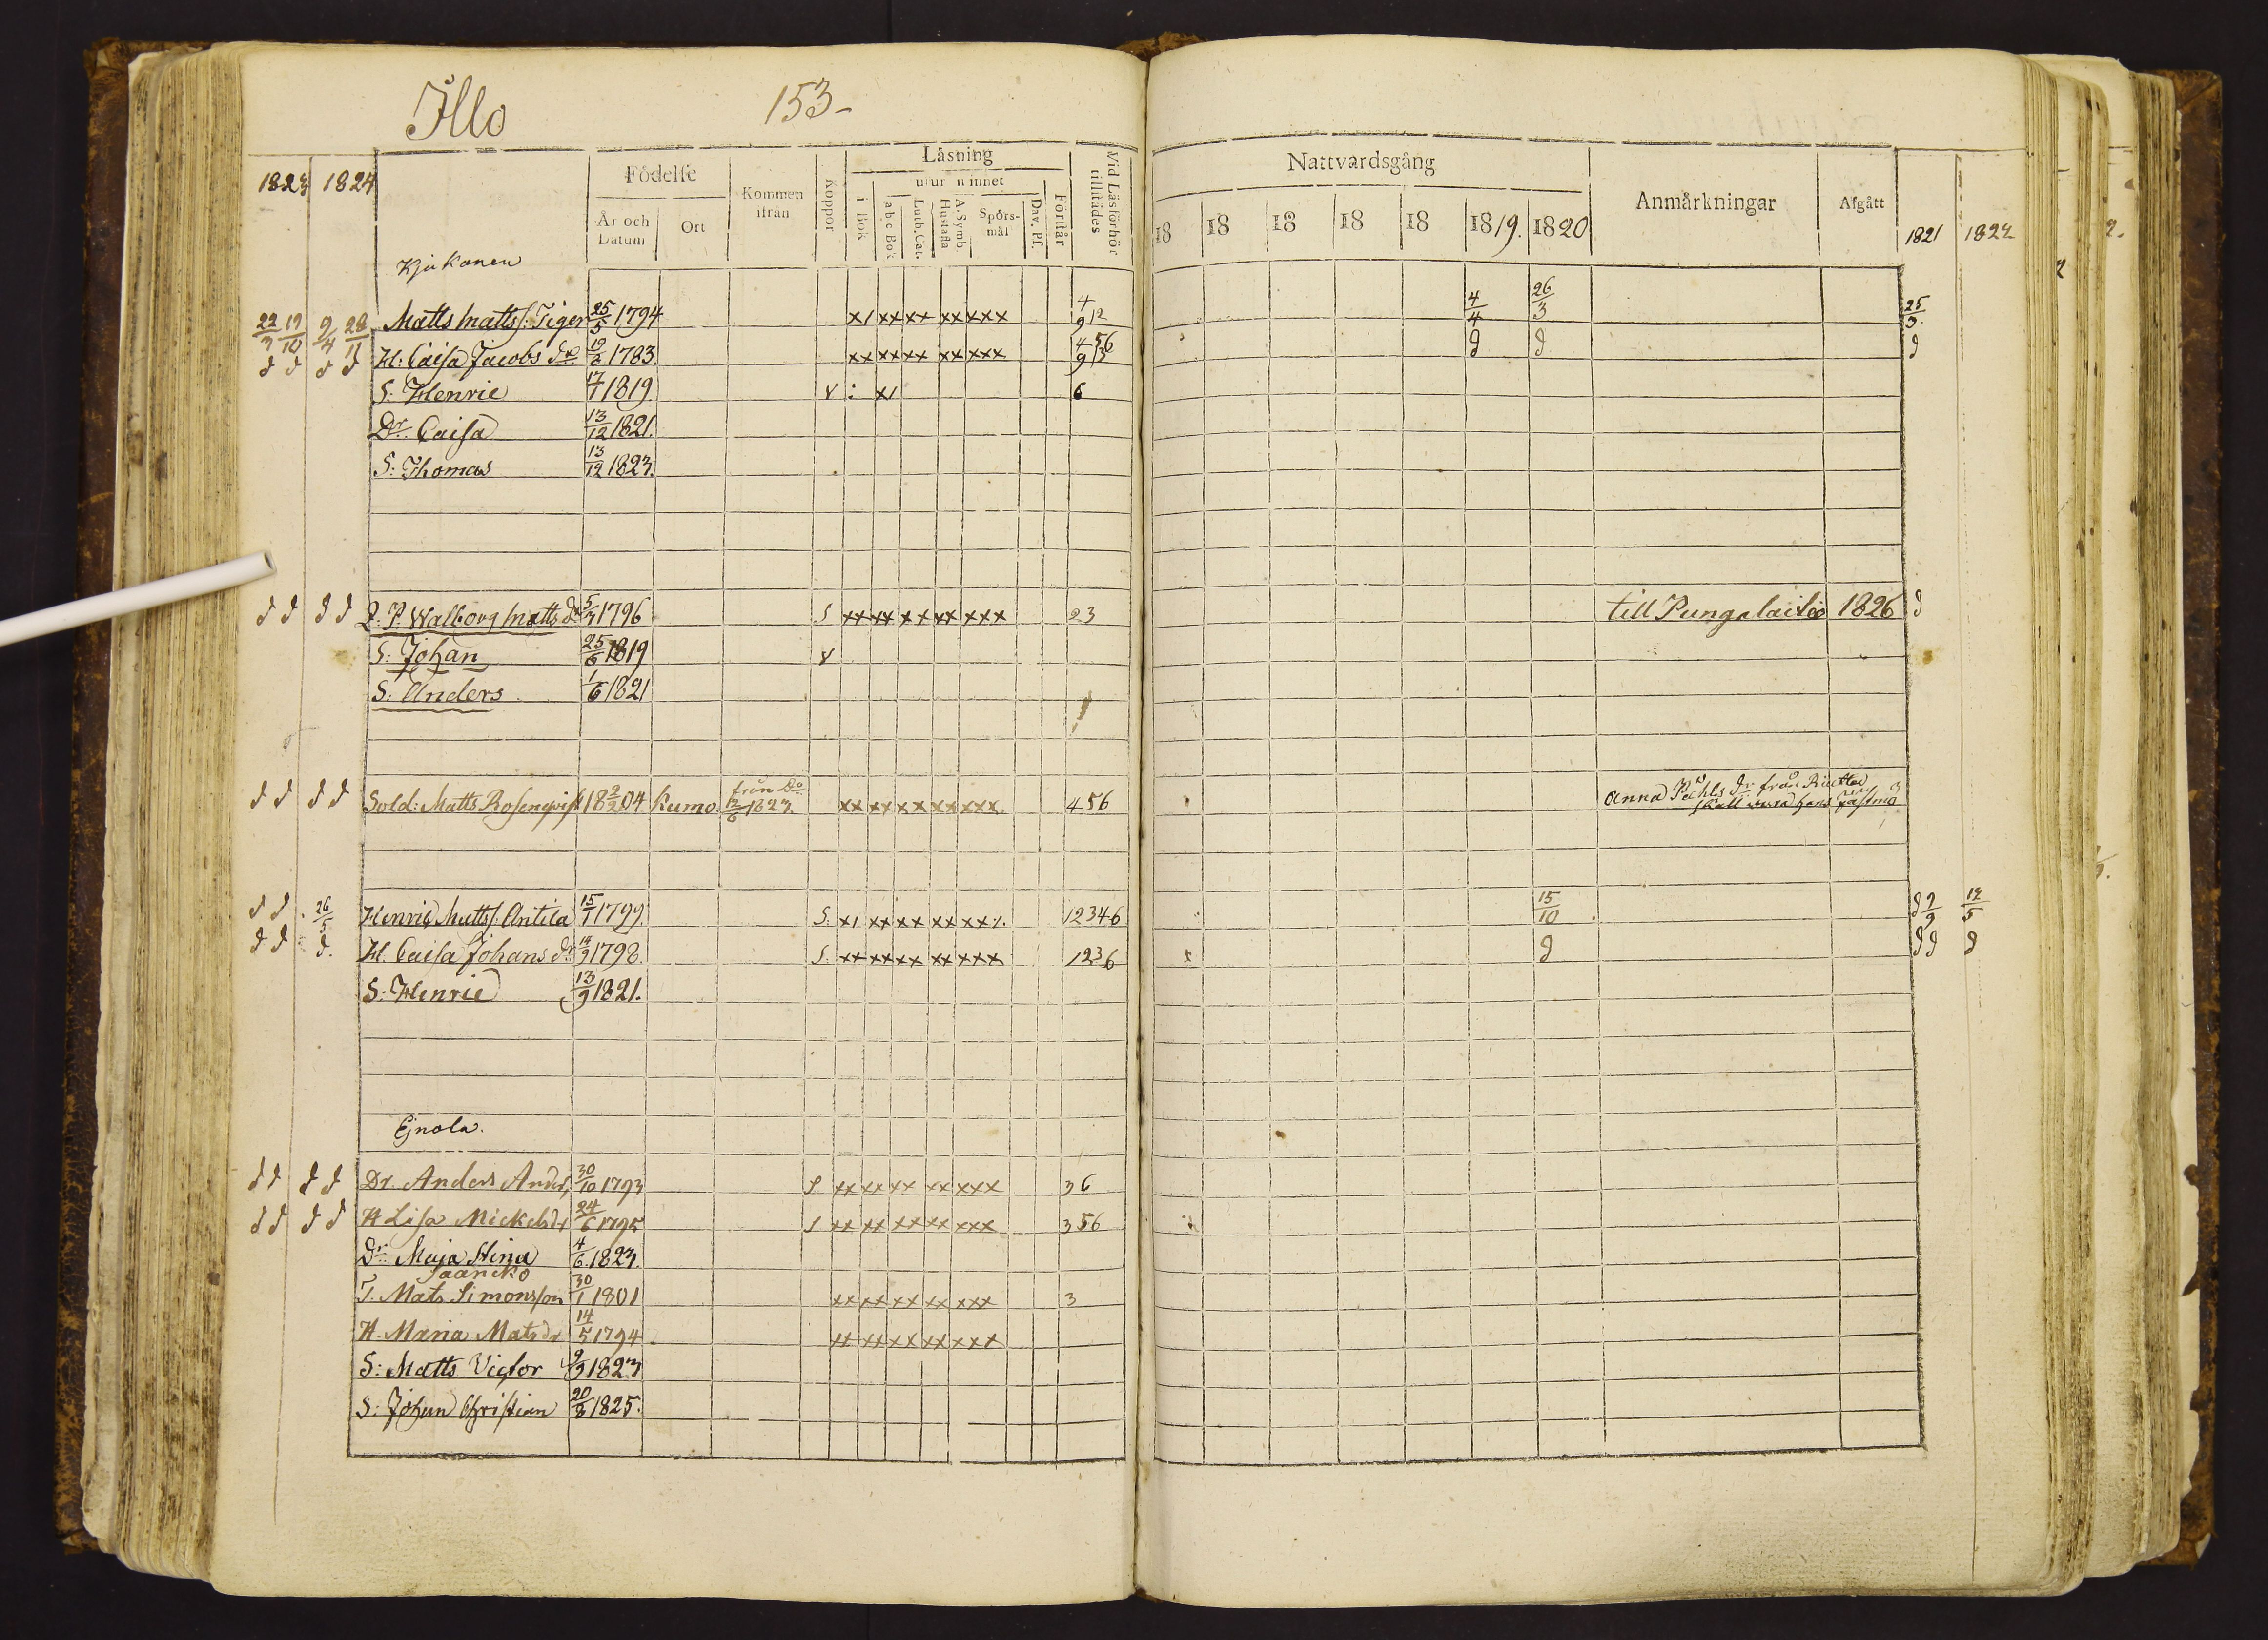 Illo 153-
1823 1824
Födelse
Kommen ifrån
Koppor
Läsning
utur minnet
i Bok
a b c Bok
Luth. Cat.
A. Symb. Hustafla
Spörs-mål
Dav. Ps.
Förstår
Vid Läsförhör tillstädes
År och Datum
Ort
Nattvardsgång
18 18 18 18 18 1819. 1820
Anmärkningar
Afgått
1821 1822
22/3 19/10 9/4 28/11 Matts Mattss: Tiger 25/5 1794 x/ xx xx xx xxx 4/9 12 4/4 26/3 25/3.
d d d d H: Caisa Jacobs dr 19/6 1783. xx xx xx xx xxx 456 d d d
S: Henric 17/1 1819. v : x/ 6
Dr. Caisa 13/12 1821.
S: Thomas 13/12 1823.
d d d d P. Walborg Matts dr 5/3 1796 S xx xx xx xx xxx 23 till Pungalaitio 1826 d
S: Johan 25/6 1819 v
S: Anders. 1/6 1821
d d d d Sold: Matts Rosenqvist 18 2/2 04 Kumo. från Do 12/6 1823. xx xx xx xx xxx 456 Anna Påhls dr från
skall vara hans fästmö
d d 26/5 Henric Matts s. Antila 15/1 1799. S. x/ xx xx xx xx/. 12346 15/10 d 2/9 12/5
d d d. H. Caisa Johans dr 19/9 1798. S. xx xx xx xx xxx 1236 x d d d d
S: Henric 13/9 1821.
Ejnola.
d d d d Dr. Anders Anders 30/10 1793 S xx xx xx xx xxx 36
d d d d H Lisa Mickelsdr 24/6 1795 S xx xx xx xx xxx 356
Dr: Maja Stina 4/6. 1823.
Jaancko
T. Mats Simonsson 30/1 1801 xx xx xx xx xxx 3
H. Maria Matsdr 14/5 1794 xx xx xx xx xxx
S: Matts Victor 9/9 1823
S: Johan Christian 20/8 1825.